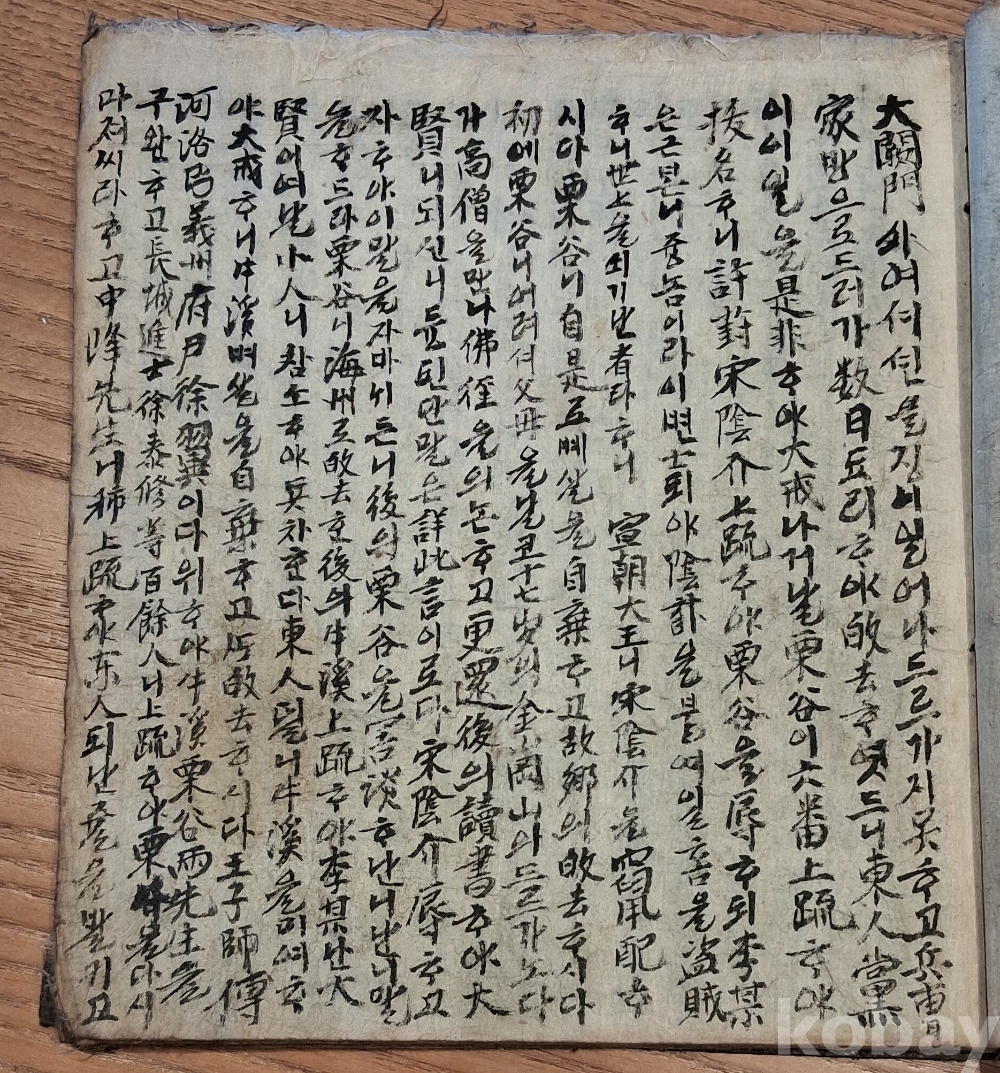 大闕門 사여셔 신을 징이 일어나 드르가지 못ᄒᆞ고 兵曹
家방으로 드러가 数日 됴리ᄒᆞ야 故去ᄒᆞ엿드니 東人黨
이 이일을 是非ᄒᆞ야 大戒나거날 栗谷이 六番上疏ᄒᆞ야
ᄒᆞ니 許葑 宋陰介 上疏ᄒᆞ야 栗谷을 辱ᄒᆞ되 李某
은 근본니 중놈이라 이 변士되야 陰計을 믕여 일홈을 盗賊
ᄒᆞ니 世上을 쇠기난 者라 ᄒᆞ니 宣朝大王니 宋陰介을 配ᄒᆞ
시다 栗谷니 自是로 볘살을 自棄ᄒᆞ고 故郷의 故去ᄒᆞ시다
初에 栗谷니 어려셔 父母을 날코 十七岁의 金岡山의 드르가노다
가 高僧을 만나 佛經을 의논ᄒᆞ고 更還後의 讀書ᄒᆞ야 大
賢니 되신니 듕 되단 말은 詳此言이로다 宋陰介 辱ᄒᆞ고
자 ᄒᆞ야 이 말을 자바뉘든니 後의 栗谷을 害談ᄒᆞ난니난 니 말
을 ᄒᆞ드라 栗谷니 海州로 故去ᄒᆞᆫ 後의 牛溪 上疏ᄒᆞ야 李某난 大
賢이여날 小人니 참소ᄒᆞ야 兵차ᄒᆞᆫ다 東人덜니 牛溪을 미여ᄒᆞ
야 大戒ᄒᆞ니 牛溪 벼살을 自棄ᄒᆞ고 故去ᄒᆞ시다 王子師傅
河洛 義州府尹 徐翼이다 위ᄒᆞ야 牛溪 栗谷 両先生을
구완ᄒᆞ고 長城進士 徐泰修等 百餘人니 上疏ᄒᆞ야 栗谷을 다시
마져씨라 ᄒᆞ고 中峰先生니 上疏ᄒᆞ야 东人되난 쥴을 발키고